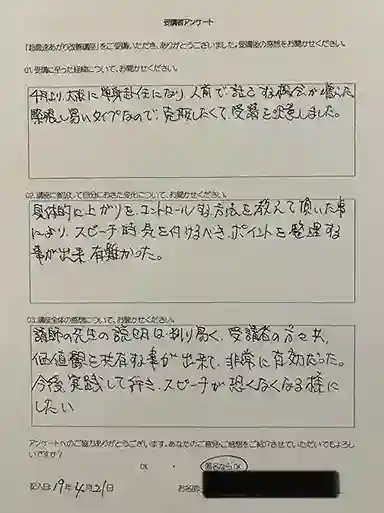 受講者アンケート
「超最速あがり改善講座」をご受講いただき、ありがとうございました。受講後の感想をお聞かせください。
Q1.受講に至った経緯について、お聞かせください。
4月より、大阪に単身赴任になり、人前で話をする機会が増えた。
緊張し易いタイプなので、克服したくて受講を決意しました。
Q2.講座に参加して自分におきた変化について、お聞かせください。
具体的に上がりを、コントロールする方法を教えて頂いた事
により、スピーチ時気を付けるべき、ポイントを整理する
事が出来、有難かった。
Q3.講座全体の感想について、お聞かせください。
講師の先生の説明は判り易く、受講者の方々共、
価値観を共有する事が出来て、非常に有効だった。
今後、実践して行き、スピーチが恐くなくなる様に
したい
アンケートへのご協力ありがとうございます。あなたのご意見・ご感想をご紹介させていただいてもよろし
いですか?
OK ・ 匿名ならOK
記入日:19年4月21日 お名前: